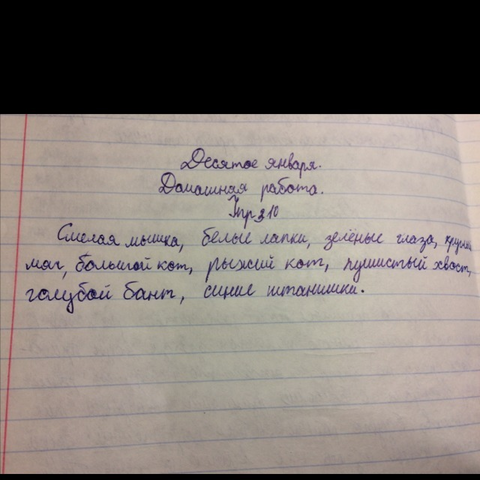 Десятое января.
Домашная работа.
Упр 310
Смелая мышка, белые лапки, зелёные глаза,
мяг, большой кот, рыжий кот, пушистый хвост,
голубой бант, синие штанишки.